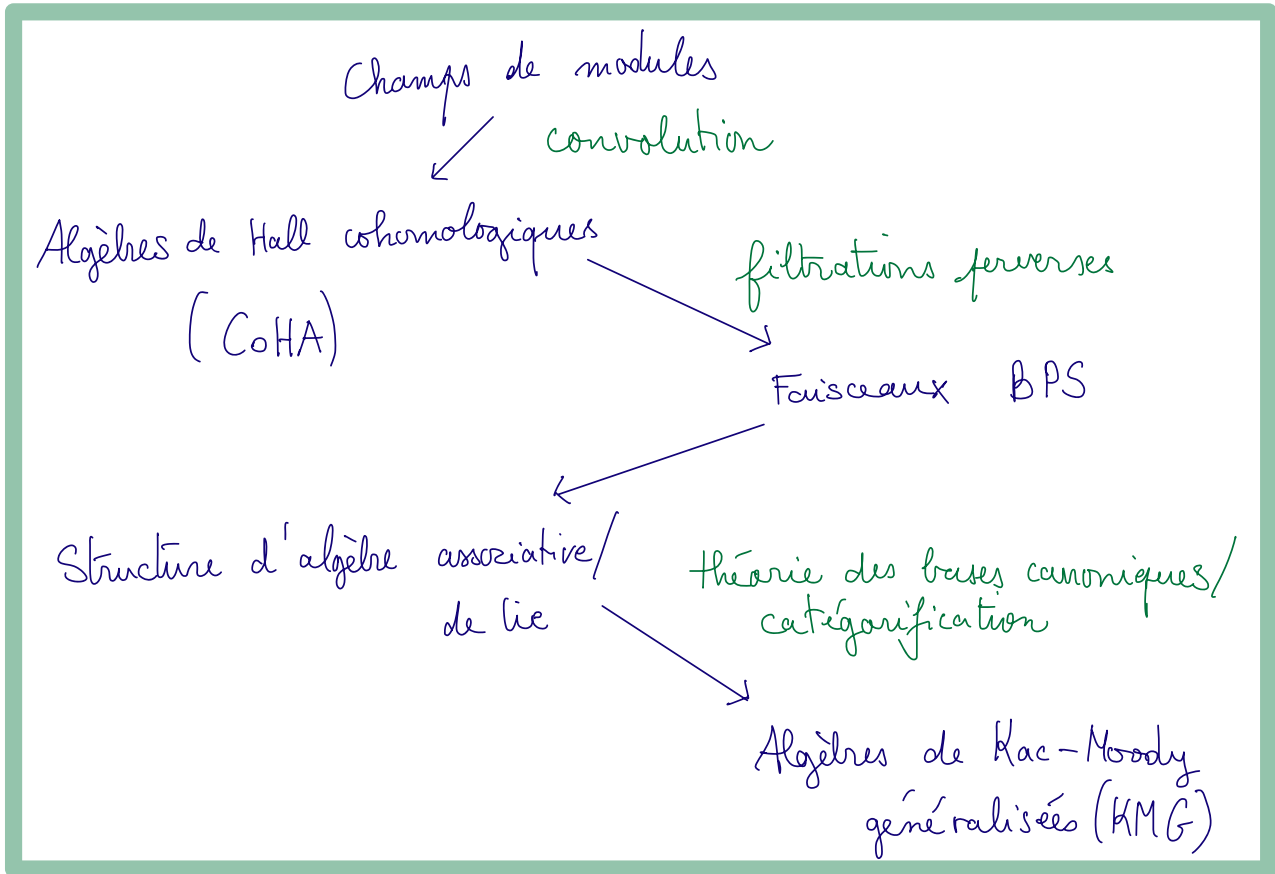 Champs de modules
convolution
Algèbres de Hall cohomologiques
(CoHA)
filtrations perverses
Faisceaux BPS
Structure d'algèbre associative/
de lie
théorie des bases canoniques/
catégorification
Algèbres de Kac-Moody
généralisées (KMG)